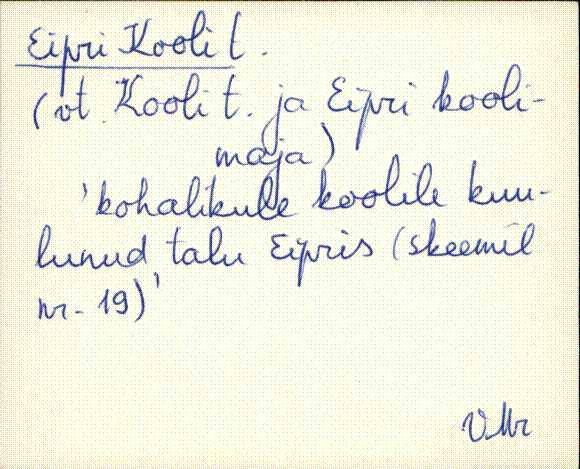 Eipri Kooli t.
(vt. Kooli t. ja Eipri kooli-
maja)
'kohalikule koolile kuu-
lunud talu Eipris (skeemil
nr. 19)'
VMr